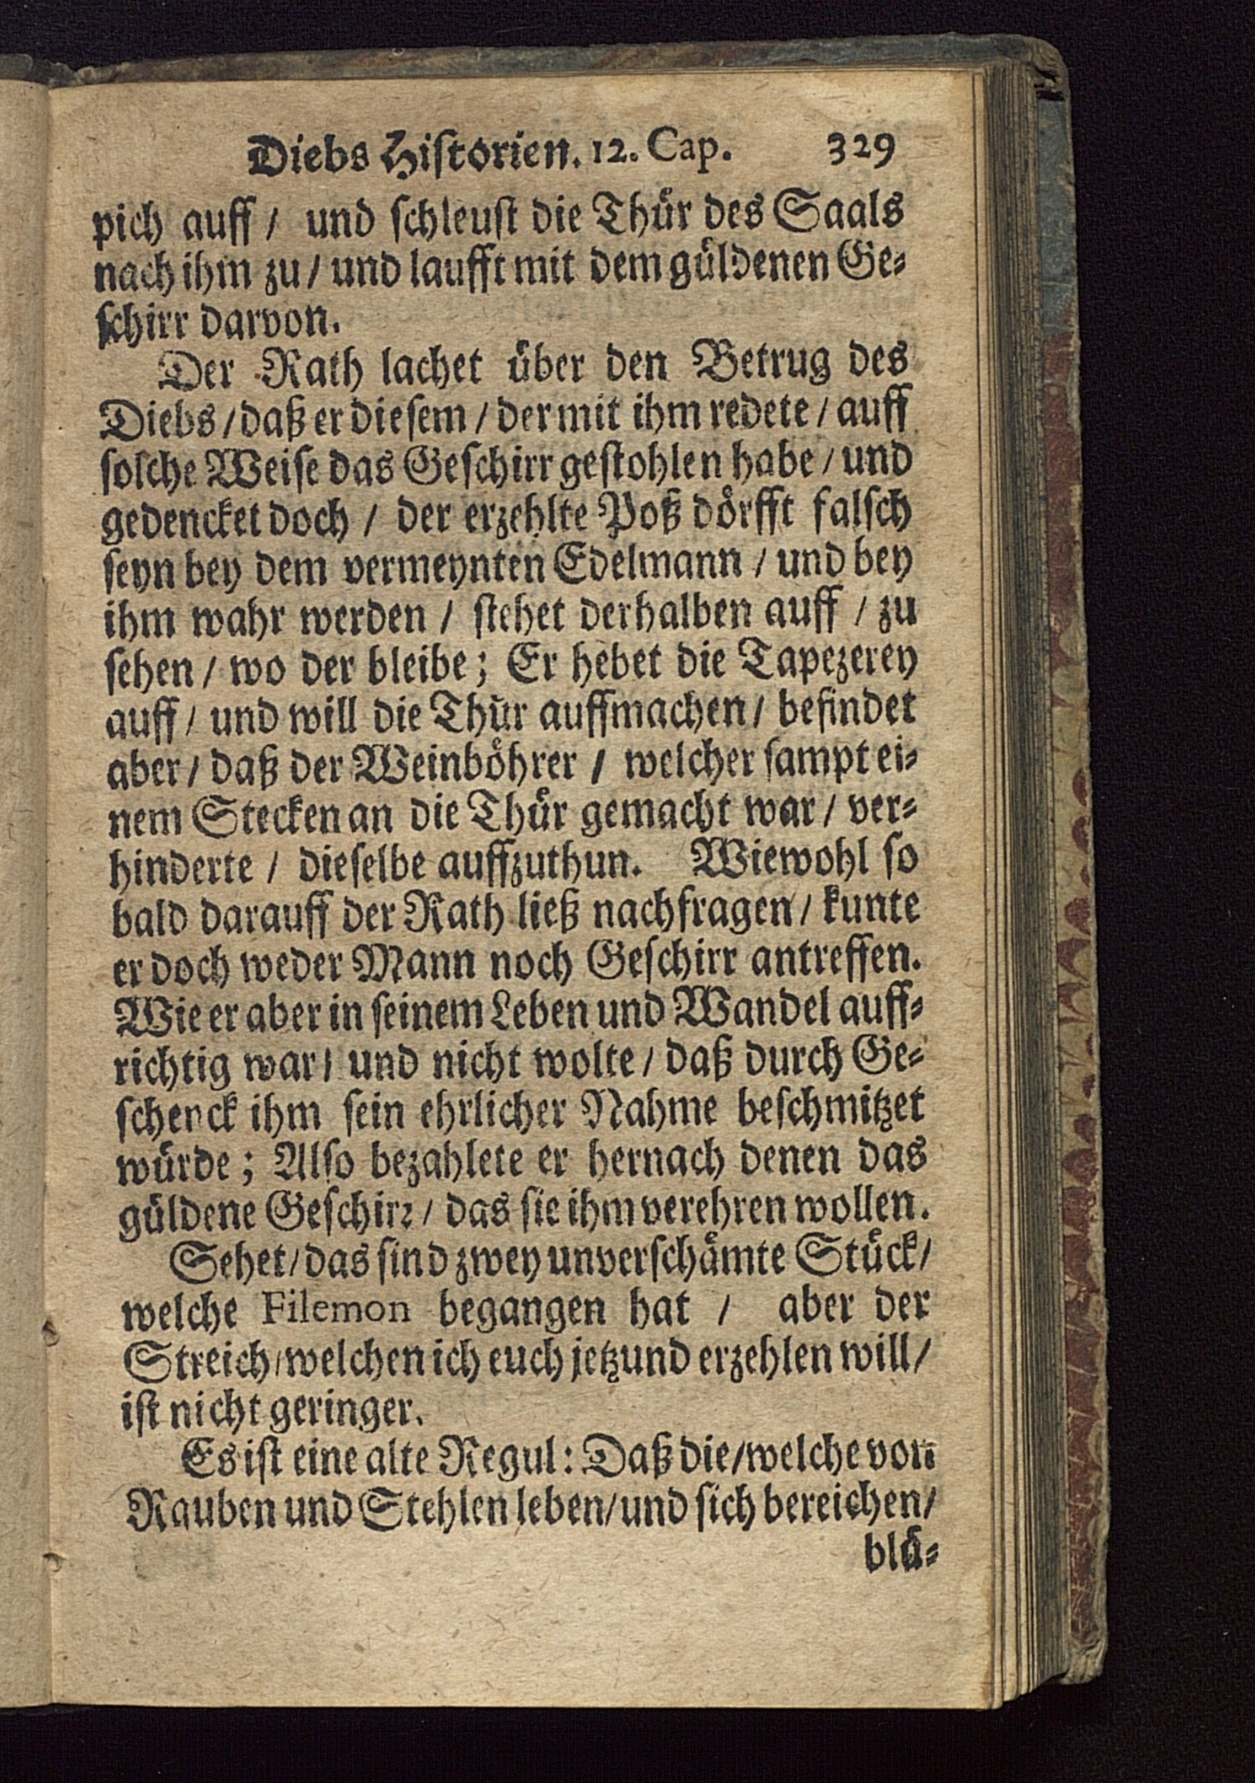 Diebs Historien. 12. Cap. 329
pich auff / und schleust die Thür des Saals
nach ihm zu / und laufft mit dem güldenen Ge-
schirr darvon.
Der Rath lachet über den Betrug des
Diebs / daß er diesem / der mit ihm redete / auff
solche Weise das Geschirr gestohlen habe / und
gedencket doch / der erzehlte Poß dörfft falsch
seyn bey dem vermeynten Edelmann / und bey
ihm wahr werden / stehet derhalben auff / zu
sehen / wo der bleibe; Er hebet die Tapezerey
auff / und will die Thür auffmachen / befindet
aber / daß der Weinböhrer / welcher sampt ei-
nem Stecken an die Thür gemacht war / ver-
hinderte / dieselbe auffzuthun. Wiewohl so
bald darauff der Rath ließ nachfragen / kunte
er doch weder Mann noch Geschirr antreffen.
Wie er aber in seinem Leben und Wandel auff-
richtig war / und nicht wolte / daß durch Ge-
schenck ihm sein ehrlicher Nahme beschmitzet
würde; Also bezahlete er hernach denen das
güldene Geschirr / das sie ihm verehren wollen.
Sehet / das sind zwey unverschämte Stück /
welche Filemon begangen hat / aber der
Streich / welchen ich euch jetzund erzehlen will /
ist nicht geringer.
Es ist eine alte Regul: Daß die / welche von
Rauben und Stehlen leben / und sich bereichen /
blü-